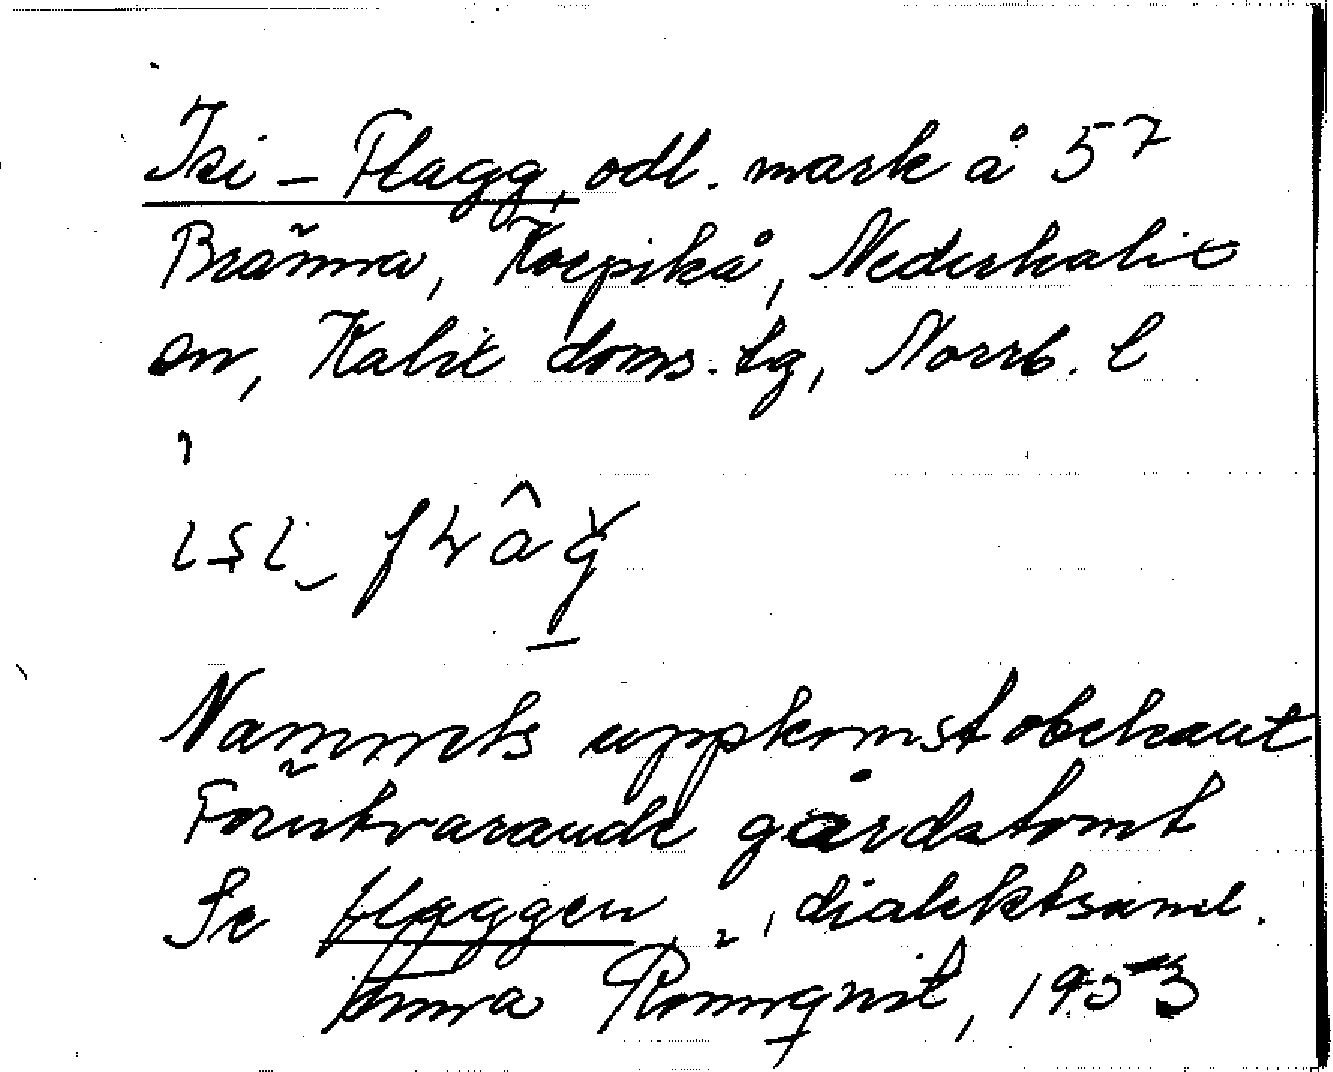 Isi-Flagg, odl. mark å 5⁷
Bränna, Korpikå, Nederkalix
sn, Kalix doms. tg, Norrb. l
Namnets uppkomst obekant
Förutvarande gårdstomt
Se flaggen, dialektsaml.
Anna Rönnqvist, 1953